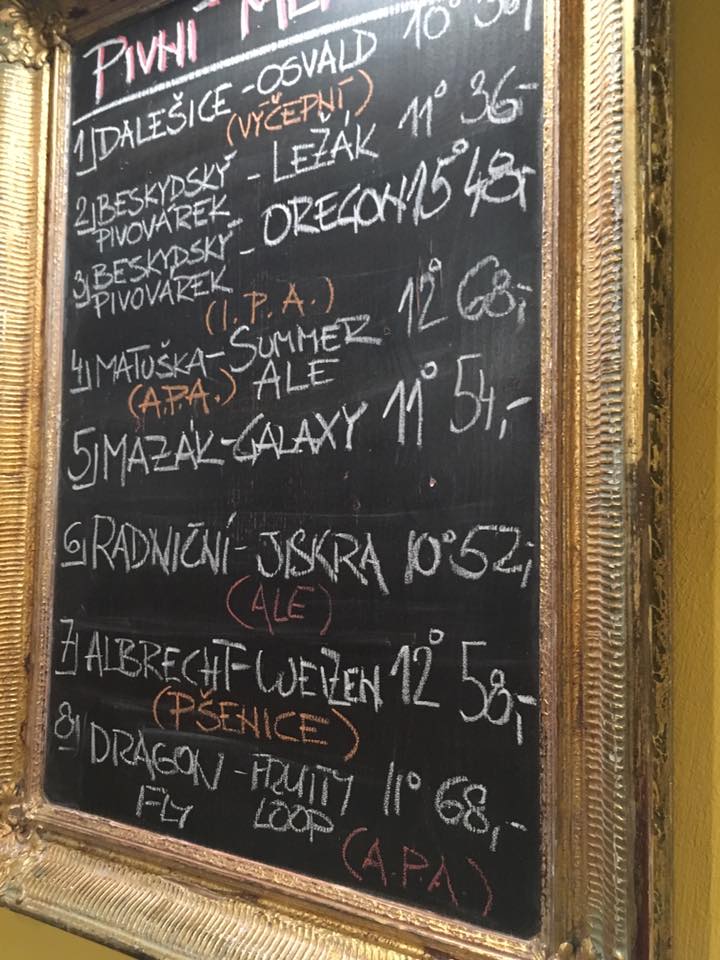 PIVNÍ
1) DALEŠICE - OSVALD 10°
(VÝČEPNÍ)
2) BESKYDSKÝ - LEŽÁK 11° 36,-
PIVOVÁREK
3) BESKYDSKÝ - OREGON 15° 48,-
PIVOVÁREK
(I.P.A.)
4) MATUŠKA - SUMMER 12° 68,-
(A.P.A.) ALE
5) MAZÁK - GALAXY 11° 54,-
6) RADNIČNÍ - JISKRA 10° 52,-
(ALE)
7) ALBRECHT - WEIZEN 12° 58,-
(PŠENICE)
8) DRAGON - FRUITY 11° 68,-
FLY LOOP
(A.P.A)